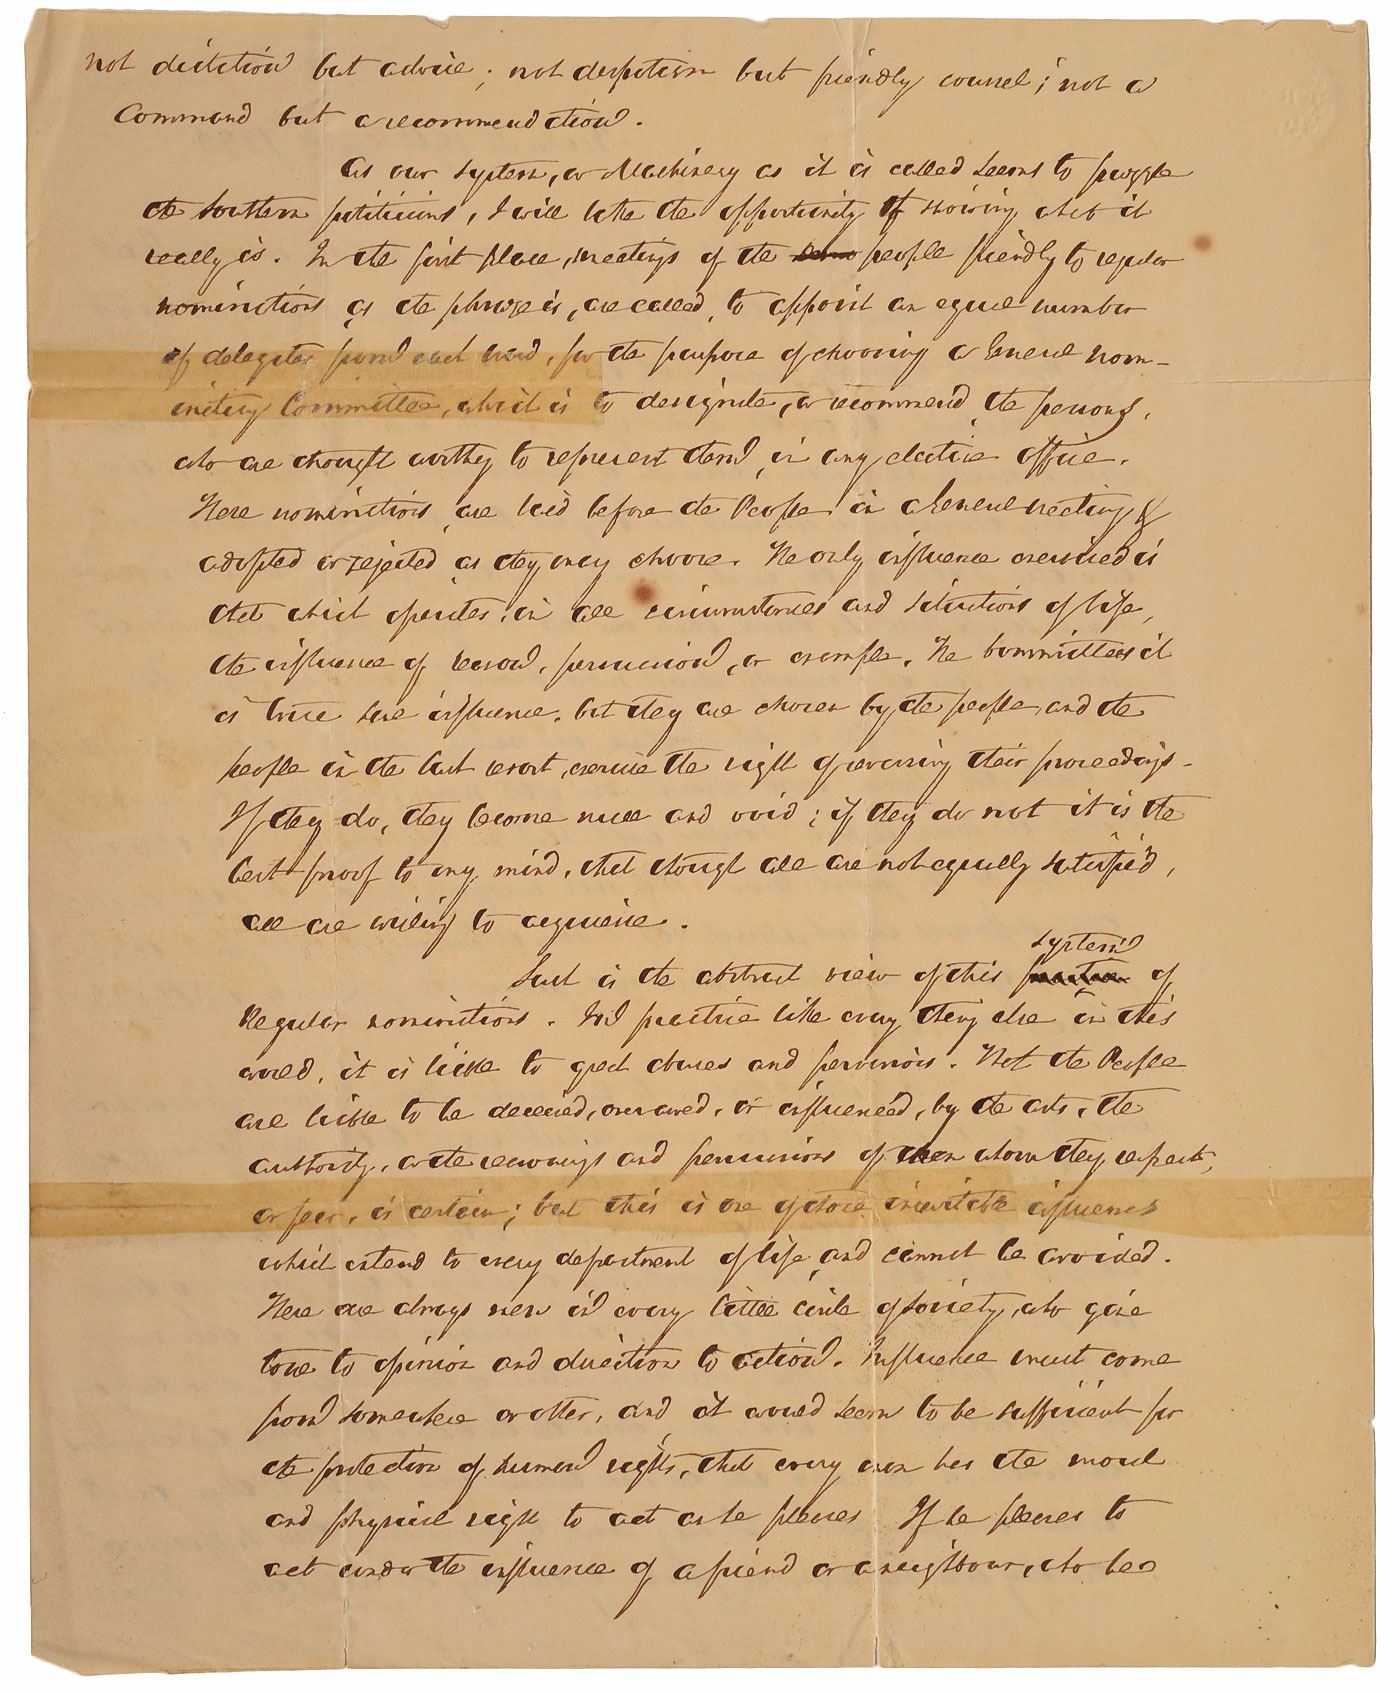 not dictation but advice; not despotism but friendly counsel; not a
Command but a recommendation.
As our system, or Machinery as it is called seems to puzzle
the Southern politicians, I will take the opportunity of showing what it
really is. In the first place, meetings of the people friendly to regular
nominations as the phraze is, are called, to appoint an equal number
of delegates from each ward, for the purpose of choosing a General nom-
inating Committee, which is to designate, or recommend the persons,
who are thought worthy to represent them in any elective office.
These nominations are laid before the People in a General meeting, &
adopted or rejected as they may choose. The only influence exercised is
that which operates, in all circumstances and situations of life,
the influence of reason, persuasion, or example. The Committees it
is true have influence, but they are chosen by the people, and the
people in the last resort, exercise the right of reversing their proceedings.
If they do, they become null and void; if they do not it is the
best proof to my mind, that though all are not equally satisfied,
all are willing to acquiesce.
system
Such is the abstract view of this practice of
Regular nominations. In practice like every thing else in this
world, it is liable to great abuses and perversions. That the People
are liable to be deceived, overawed, or influenced, by the arts, the
authority, or the reasonings and persuasions of men whom they respect,
or fear, is certain; but this is one of those inevitable influences
which extend to every department of life and cannot be avoided.
There are always men in every little circle of society, who give
tone to opinion and direction to action. Influence must come
from somewhere or other, and it would seem to be sufficient for
the protection of human rights, that every man has the moral
and physical right to act as he pleases If he pleases to
act under the influence of a friend or a neighbour, who has